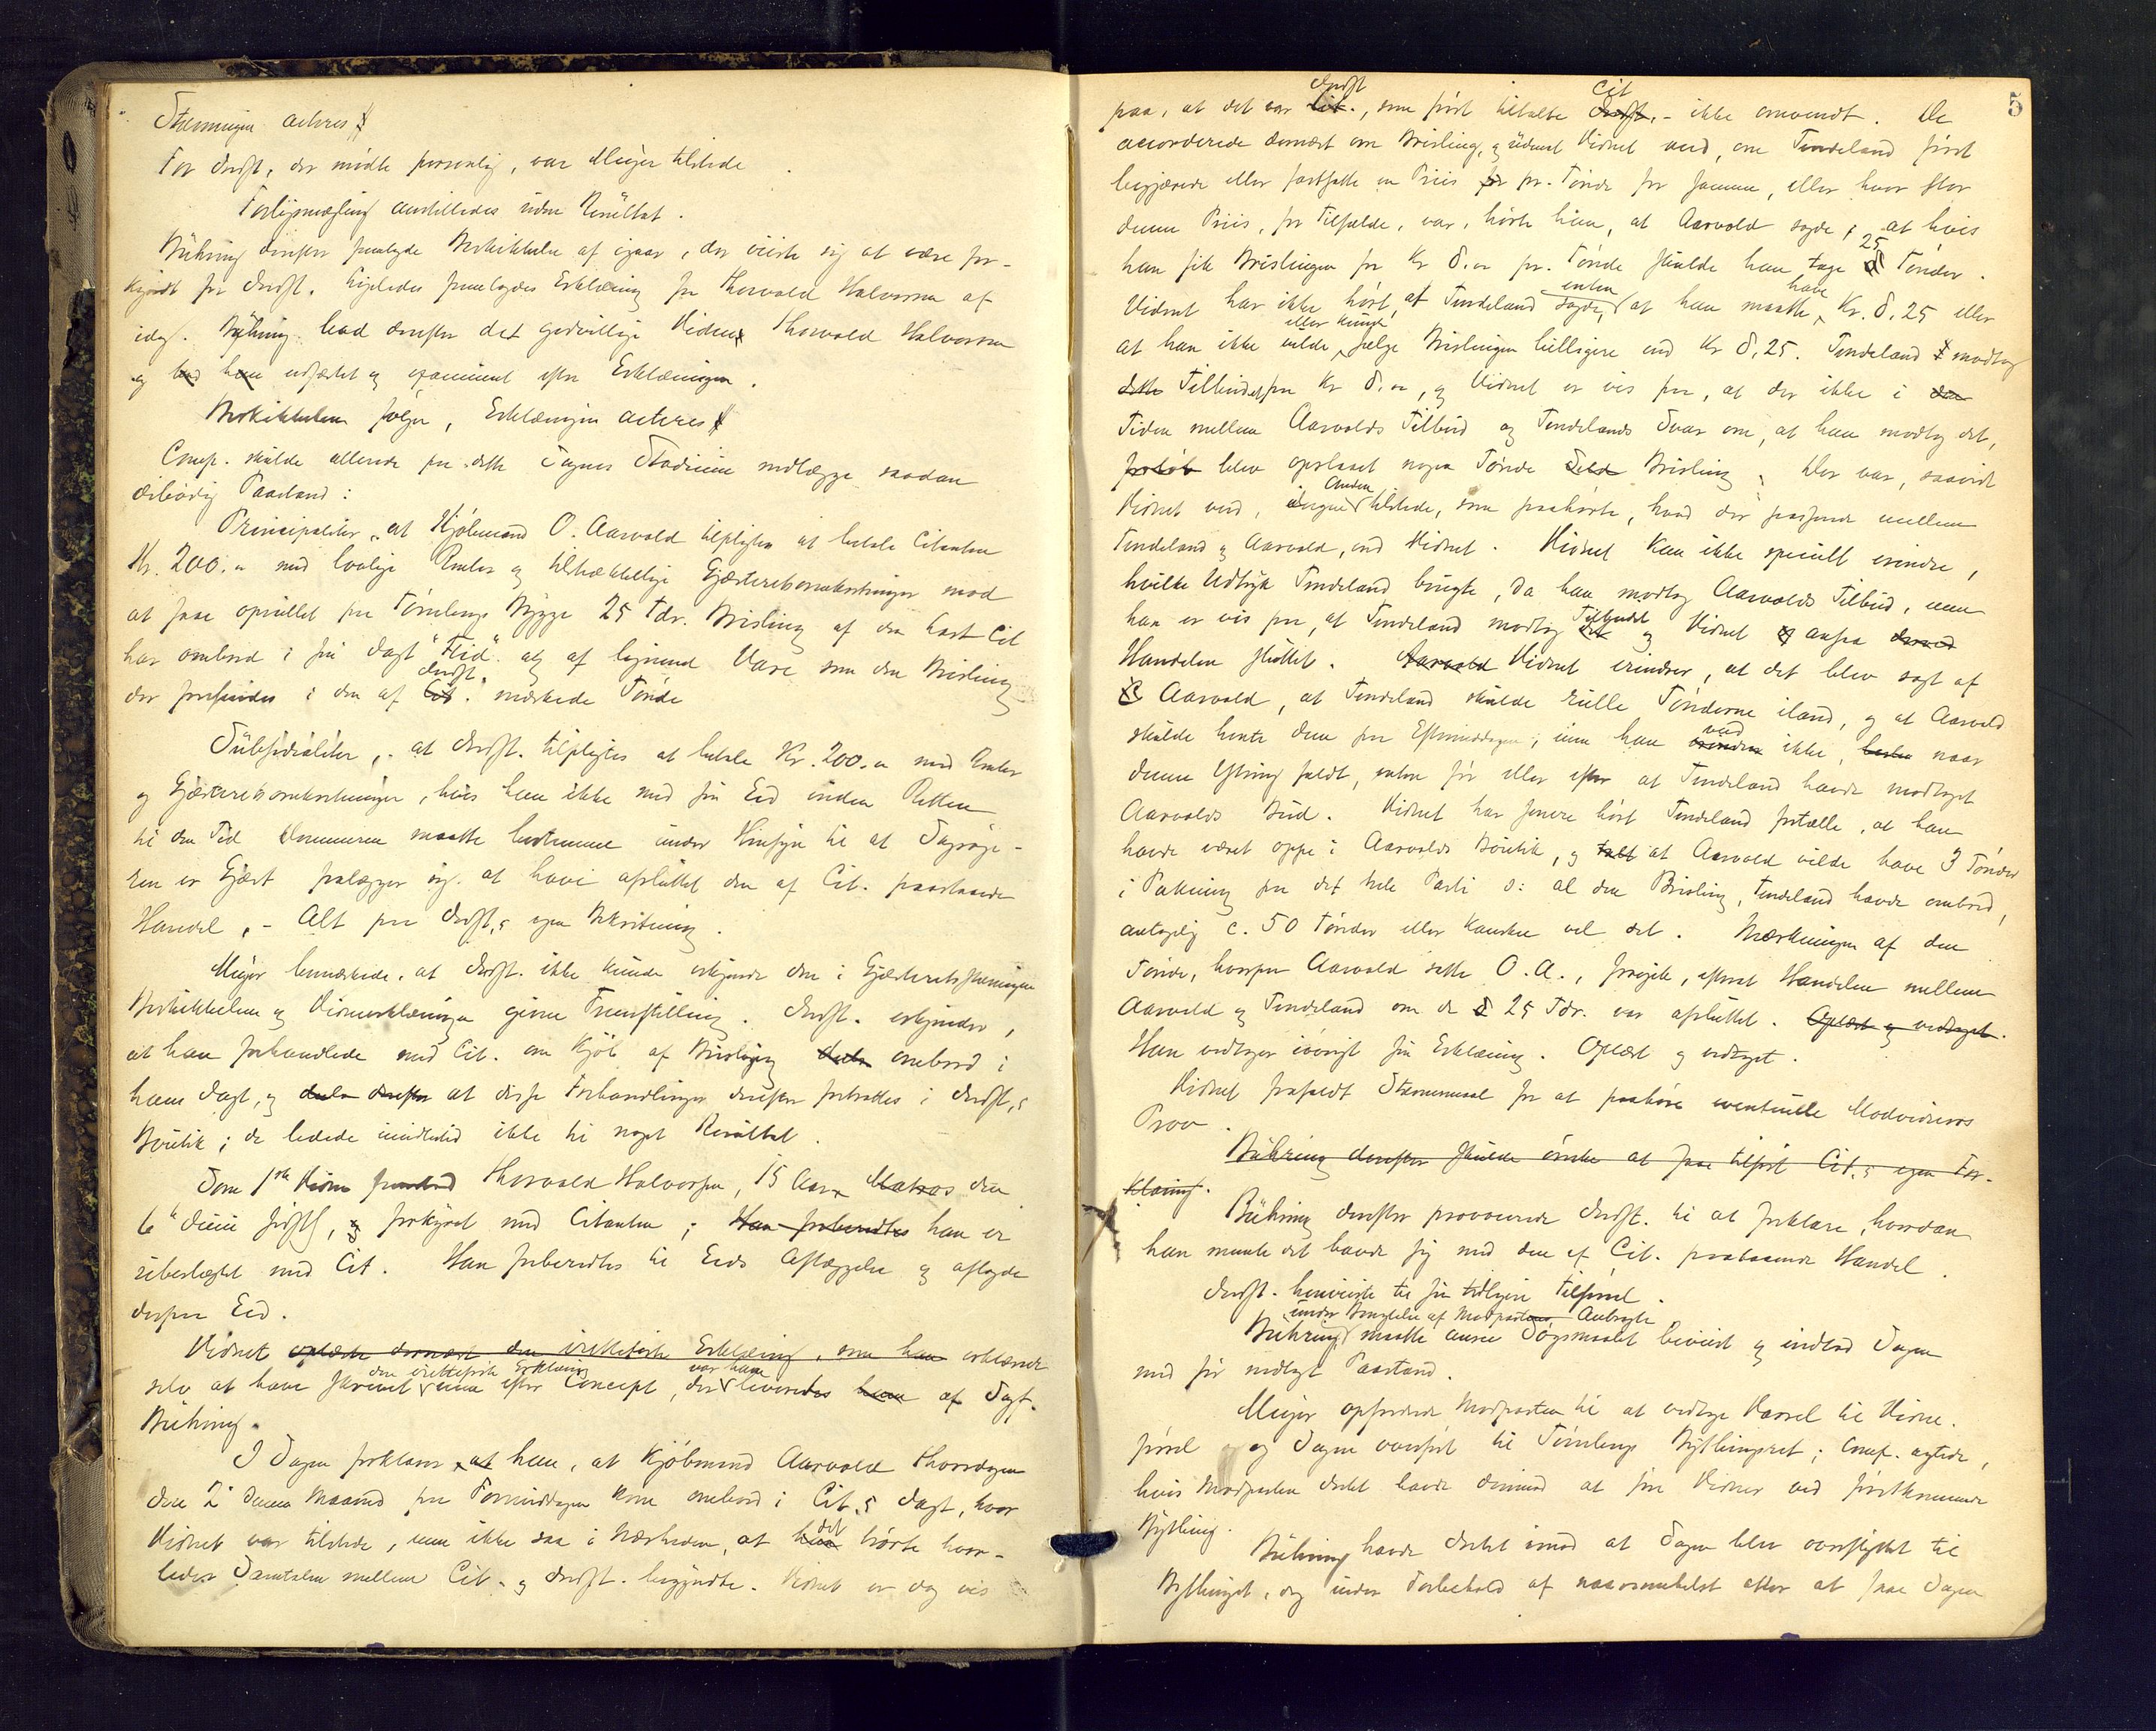 Stævningen acteres
For Indst., der mødte personlig, var Meyer tilstede.
Forligsmægling anstilledes uden Resultat.
Bühring derefter fremlagde Beskikkelse af igaar, der viiste sig at være for-
kyndt for Indst. Ligeledes fremlagdes Erklæring fra Thorvald Halvorsen af
idag. Bühring bad derefter det godvillige Vidne Thorvald Halvorsen
og edfæstet og examineret efter Erklæringen.
Beskikkelsen følger, Erklæringen acteres
Comp. skulde allerede paa dette Sagens Stadium nedlægge saadan
ærbødig Paastand:
Principaliter, at Kjøbmand O. Aarvold tilpligtes at betale Citanten
Kr. 200.00 med lovlige Renter og tilstrækkelige Gjæsteretsomkostninger mod
at faae oprullet paa Tønsbergs Brygge 25 Tdr. Brisling af den Last Cit
har ombord i sin Jagt "Flid" alt af lignende Vare som den Brisling
der forefindes i den af Indst. Cit. mærkede Tønde
Subsidialiter, at Indst. tilpligtes at betale Kr. 200.00 med Renter
og Gjæsteretsomkostninger, hvis han ikke med sin Eed inden Retten
til den Tid Dommeren maatte bestemme under Hensyn til at Sagsøge-
ren er Gjæst fralægger sig at have afsluttet den af Cit. paastaaede
Handel, - Alt paa Indst.s egen Bekostning.
Meyer bemærkede, at Indst. ikke kunde erkjende den i Gjæsteretsstævningen
Beskikkelsen og Vidneerklæringen givne Fremstilling. Indst. erkjender,
at han forhandlede med Cit. om Kjøb af Brisling ombord i
hans Jagt, og at disse Forhandlinger derefter fortsattes i Indst.s
Boutik; de ledede imidlertid ikke til noget Resultat.
Som 1ste Vidne fremstod Thorvald Halvorsen, 15 Aar, Matros den
6te Juni sidstl, og forhyret med Citanten; Han foberedtes han er
ubeslægtet med Cit. Han foberedtes til Eeds Aflæggelse og aflagde
derpaa Eed.
Vidnet oplæste dernæst den irettelagte Erklæring, som han erklærede
selv at have skrevet den irettelagte Erklæring efter Concept, der var ham leveredes ham af Sagf.
Bühring.
I Sagen forklarer at han, at Kjøbmand Aarvold Thorsdagen
den 2den denne Maaned paa Formiddagen kom ombord i Cit.s Jagt, hvor
Vidnet var tilstede, men ikke saa i Nærheden, at han det hørte hvor-
ledes Samtalen mellem Cit. og Indst. begyndte. Vidnet er dog vis
5
paa, at det var Indst Cit., som først tiltalte Cit Indst, - ikke omvendt. De
accorderede dernæst om Brisling, og uden at Vidnet veed, om Tendeland først
begjærede eller fastsatte en Priis for pr. Tønde for samme, eller hvor stor
denne Priis, for Tilfælde, var, hørte han, at Aarvold sagde, at hvis
han fik Brislingen for Kr 8.00 pr. Tønde skulde han tage 25 Tønder.
Vidnet har ikke hørt, at Tendeland enten sagde, at han maatte have Kr. 8.25 eller
at han ikke vilde eller kunde sælge Brislingen billigere end Kr 8,25. Tendeland modtog
dette Tilbudet paa Kr 8.00, og Vidnet er vis paa, at der ikke i den
Tiden mellem Aarvolds Tilbud og Tendelands Svar om, at han modtog det,
forløb blev opslaaet nogen Tønde Sild Brisling. Der var, saavidt
Vidnet veed, ingen Anden tilstede, som paahørte, hvad der passerede mellem
Tendeland og Aarvold, end Vidnet. Vidnet kan ikke specielt erindre,
hvilke Udtryk Tendeland brugte, da han modtog Aarvolds Tilbud, men
han er vis paa, at Tendeland modtog Tilbudet det og Vidnet ansaa dermed
Handelen sluttet. Aarvold Vidnet erindrer, at det blev sagt af
Aarvold, at Tendeland skulde rulle Tønderne iland, og at Aarvold
skulde hente dem paa Eftermiddagen, men han veed erindrer ikke, naar
denne Ytring faldt, enten før eller efter at Tendeland havde modtaget
Aarvolds Bud. Vidnet har senere hørt Tendeland fortælle, at han
havde været oppe i Aarvolds Boutik, og talt at Aarvold vilde have 3 Tønder
i Pakning paa det hele Parti o: al den Brisling, Tendeland havde ombord,
antagelig c. 50 Tønder eller kanske vel det. Mærkningen af den
Tønde, hvorpaa Aarvold satte O.A., foregik, efterat Handelen mellem
Aarvold og Tendeland om de 25 Tdr. var afsluttet. Oplæst og vedtaget.
Han vedtager iøvrigt sin Erklæring. Oplæst og vedtaget.
Vidnet frafaldt Stævnemaal for at paahøre eventuelle Modvidners
Prov.
Bühring derefter skulde ønske at faae tilført Cit.s egen For-
klaring.
Bühring derefter provocerede Indst. til at forklare, hvordan
han mente det havde sig med den af Cit. paastaaede Handel.
Indst. henviiste til sin tidligere Tilførsel.
Bühring under Benegtelse af Modpartens Anbragte maatte ansee Søgsmaalet beviist og indlod Sagen
med før nedlagt Paastand.
Meyer opfordrede Modparten til at vedtage Varsel til Vidne-
førsel og Sagen overført til Tønsbergs Bythingsret; Comp. agtede,
hvis Modparten Intet havde derimod at føre Vidner ved førstkommende
Bything.
Bühring havde Intet imod at Sagen blev overflyttet til
Bythinget, dog under Forbehold af naarsomhelst atter at faae Sagen